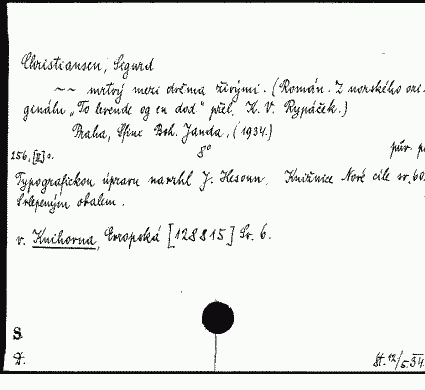 Christiansen, Sigurd
~~ mrtvý mezi dvěma živými. (Román. Z norského ori-
ginálu „To levende og en død" přel. K. V. Rypáček.)
Praha, Sfinx Boh. Janda, (1934.)
256, [II] s. 8° pův. p
Typografickou úpravu navrhl J. Hesoun. Knižnice Nové cíle sv. 60.
S vlepeným obalem.
v. Knihovna, Evropská [128815] Sv. 6.
S.
D. St. 12/5.34